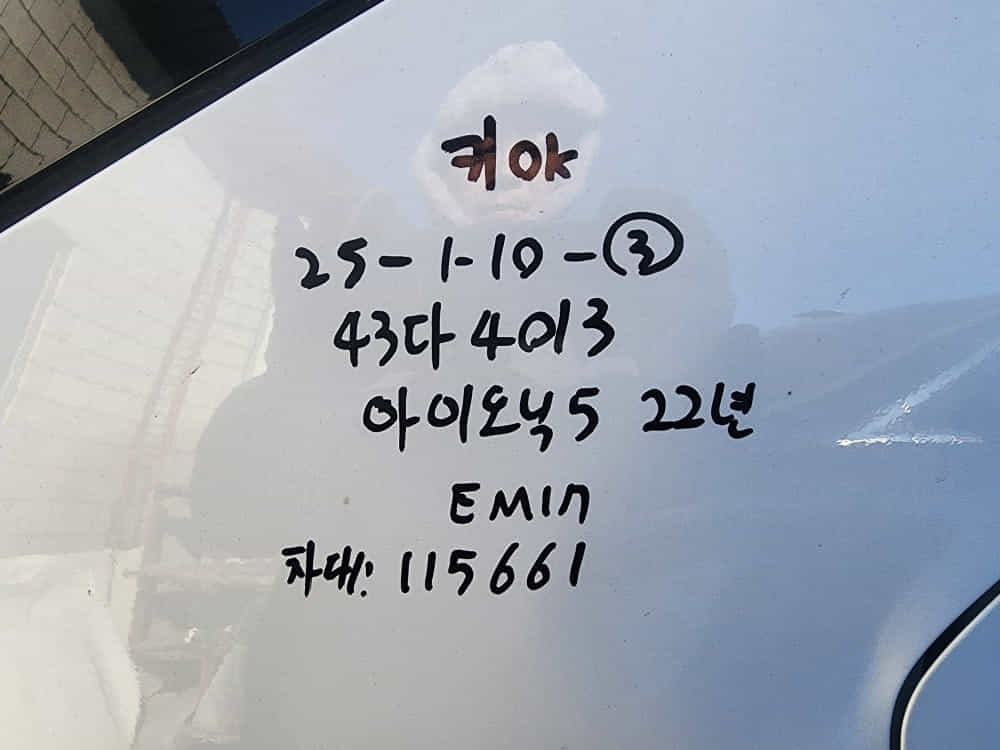 키OK
25-1-10-③
43다4013
아이오닉5 22년
EM17
차대: 115661